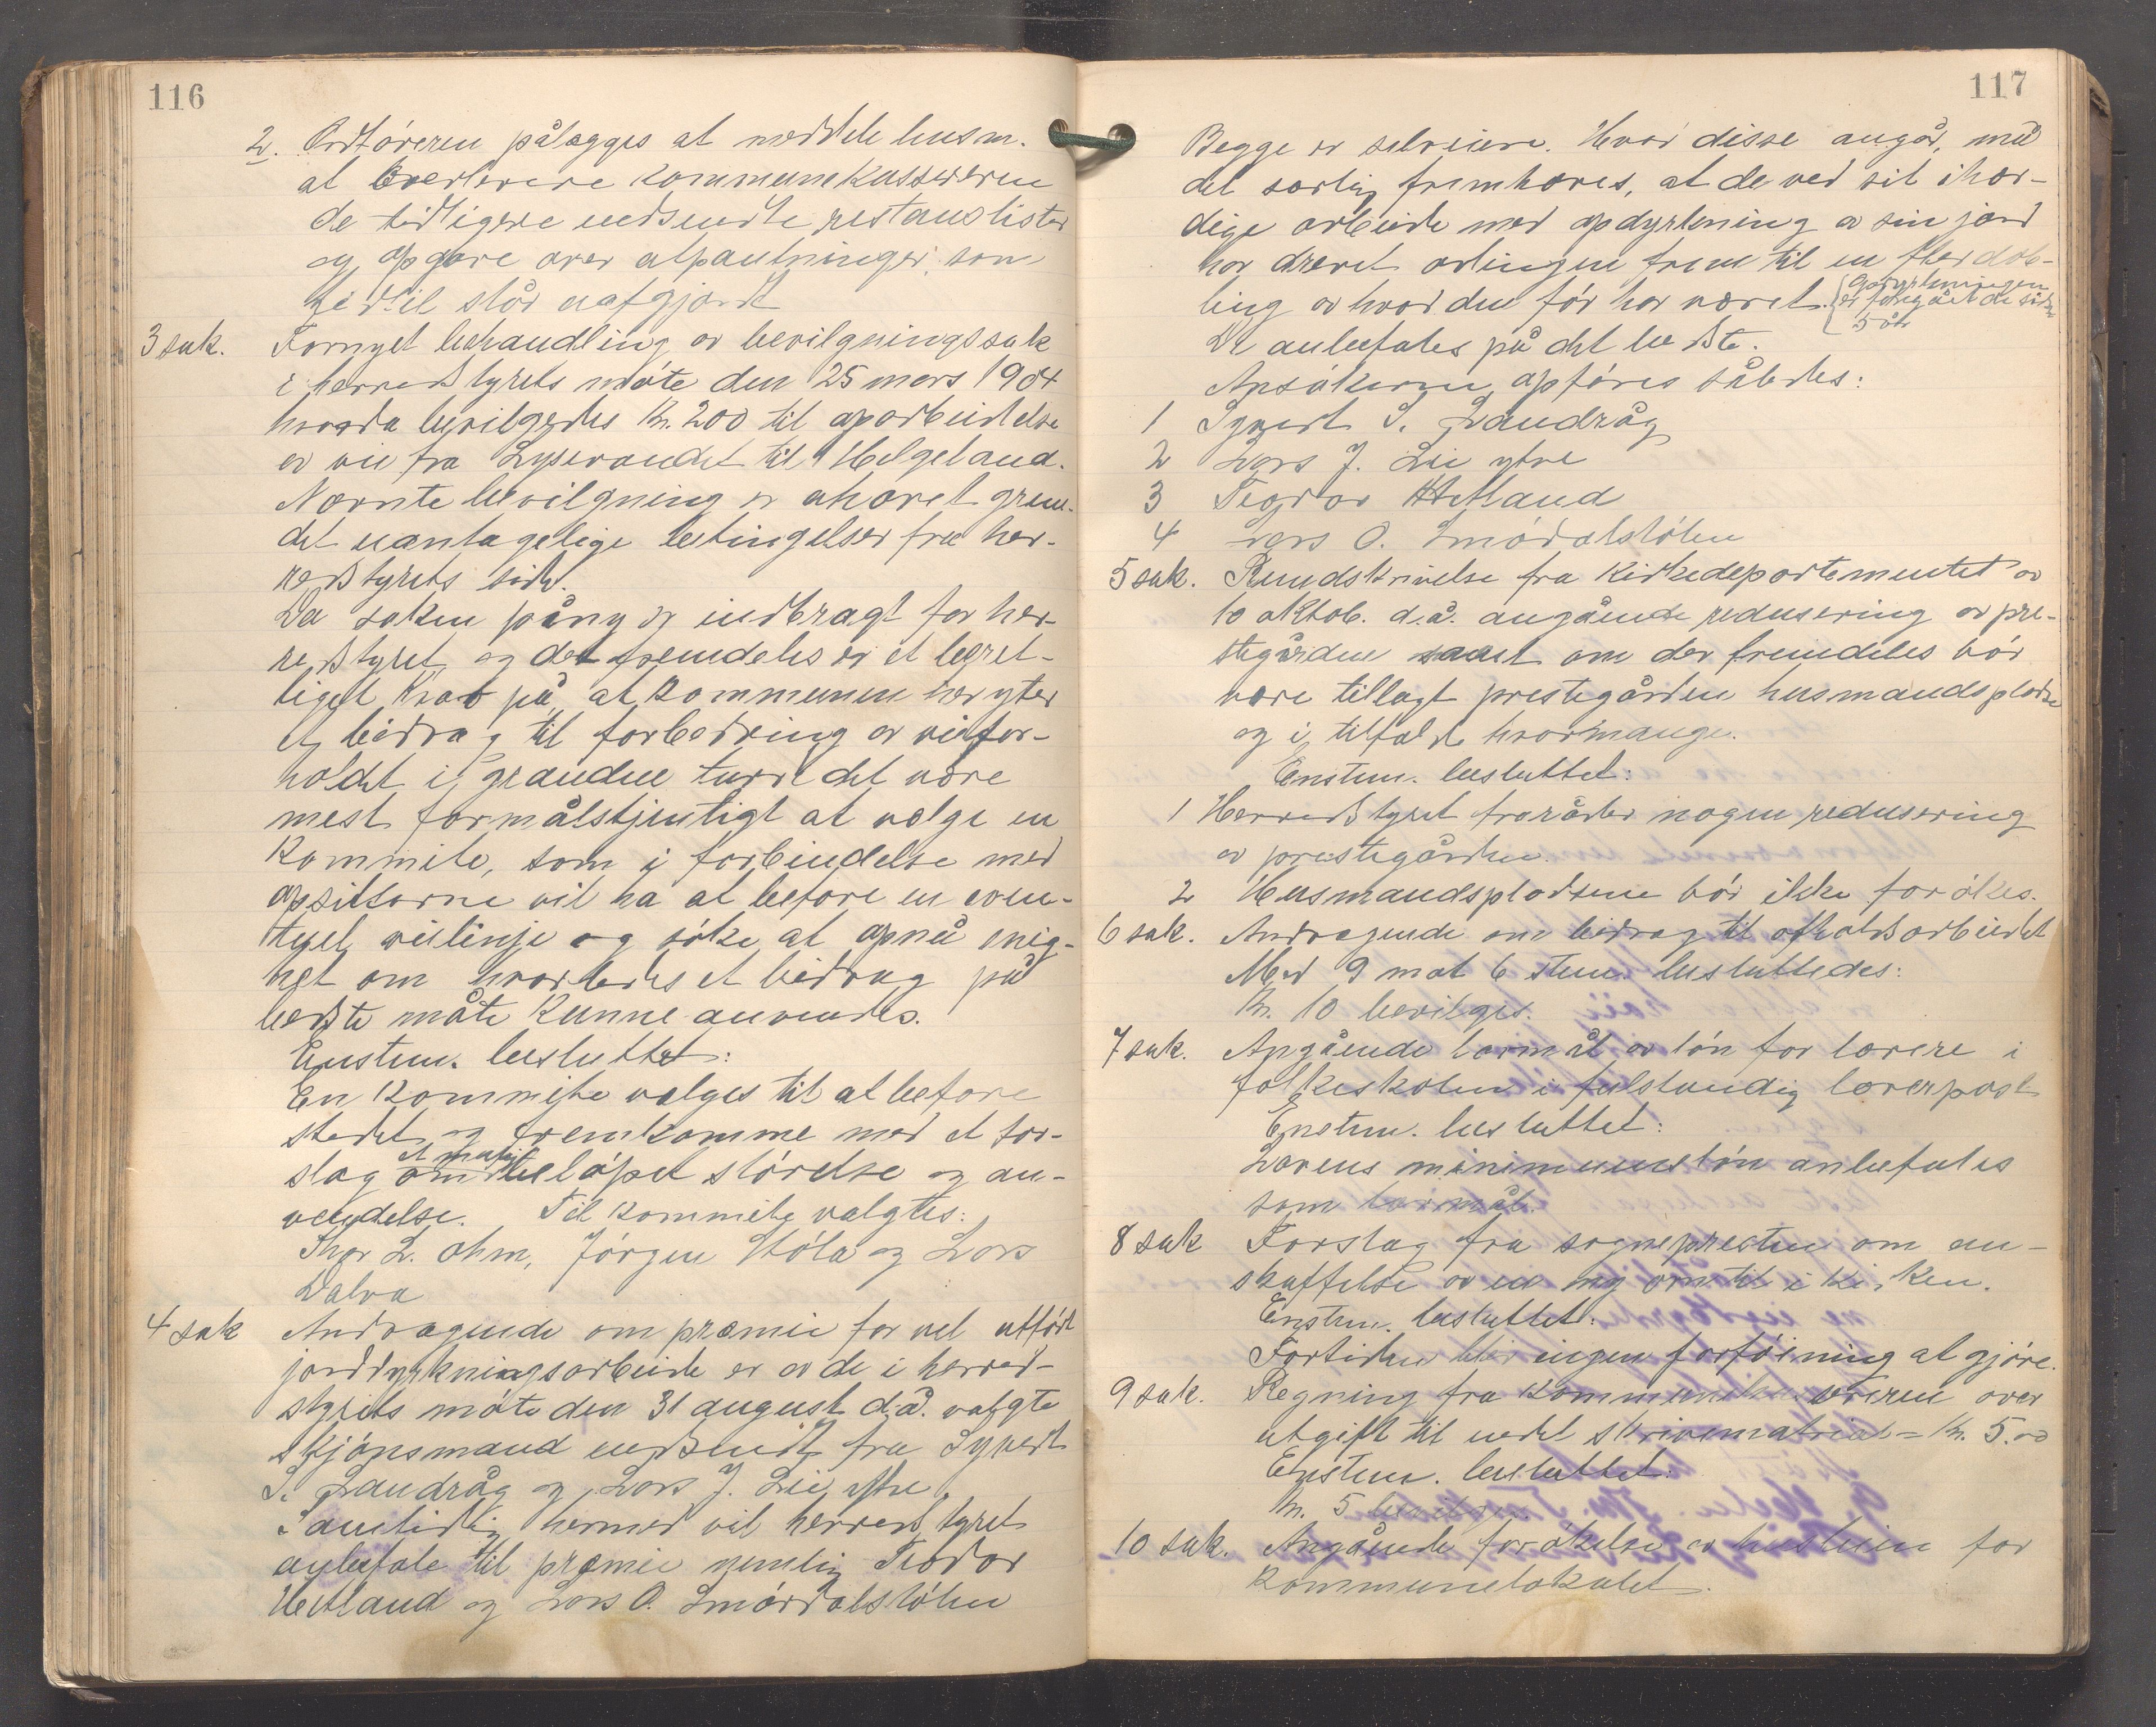 116
2. Ordføreren pålægges at meddele lensm.
at overlevere kommunekassereren
de tidligere nedsendte restanslister
og opgøre over utpantninger som
hertil står uafgjort
3 sak. Fornyet behandling av bevilgningssak
i herredstyrets møte den 25 mars 1904
hvorda bevilgedes Kr. 200 til oparbeidelse
av vei fra Lysevandet til Helgeland.
Nævnte bevilgning er ahævet grun-
det uantagelige betingelser fra her-
redstyrets side.
Da saken påny er indbragt for her-
redstyret og det fremdeles er et beret-
tiget krav på at kommunen her yter
et bidrag til forbedring av veifor-
holdet i grænden turde det være
mest formålstjenligt at vælge en
kommite, som i forbindelse med
opsitterne vil ha at befare en even-
tuel veilinje og søke at opnå enig-
het om hvorledes et bidrag på
bedste måte kunne anvendes.
Enstem. besluttet:
En kommite vælges til at befare
stedet og fremkomme med et for-
slag om et mulig beløpet størelse og an-
vendelse. Til kommite valgtes:
Thor L. Ohm, Jørgen Støla og Lars
Dalva
4 sak Andragende om præmie for vel utført
jorddyrkningsarbeide er av de i herred-
styrets møte den 31 august d.å. valgte
skjønsmænd indsendt fra Syvert
S. Landråg og Lars J. Lie ytre.
Samtidig hermed vil herredstyret
anbefale til præmie nemlig Teodor
Hetland og Lars O. Smørdalstølen
117
Begge er selveiere. Hvad disse angår, må
det særlig fremhæves, at de ved sit ihær-
dige arbeide med opdyrkning av sin jord
har drevet avlingen frem til en flerdob-
ling av hvad den før har været. {Opdyrkningen
er foregået de siste
5 år
De anbefales på det bedste.
Ansøkerne opføres således:
1 Syvert S. Landråg
2 Lars J. Lie ytre
3 Teodor Hetland
4 Lars O. Smørdalstølen
5 sak. Rundskrivelse fra Kirkedepartementet av
10 oktob. d.å. angående redusering av pre-
stegårdene samt om der fremdeles bør
være tillagt prestegården husmandsplodse
og i tilfælde hvormange.
Enstem. besluttet:
1 Herredstyret fraråder nogen redusering
av prestegården.
2 Husmandsplodsene bør ikke forøkes.
6 sak. Andragende om bidrag til avholdsarbeidet
Med 9 mot 6 stem. besluttedes:
Kr. 10 bevilges.
7 sak. Angående normål av løn for lærere i
folkeskolen i fulstændig lærerpost
Enstem. besluttet:
Lovens minimumsløn anbefales
som normål.
8 sak Forslag fra sognepresten om an-
skaffelse av en ny ovn til i kirken.
Enstem. besluttet:
Fortiden blir ingen forføining at gjøre.
9 sak. Regning fra kommunekassereren over
utgift til nedel skrivematriel = Kr. 5.00
Enstem. besluttet:
Kr. 5 bevilges.
10 sak. Angående forøkelse av husleien for
kommunelokalet.